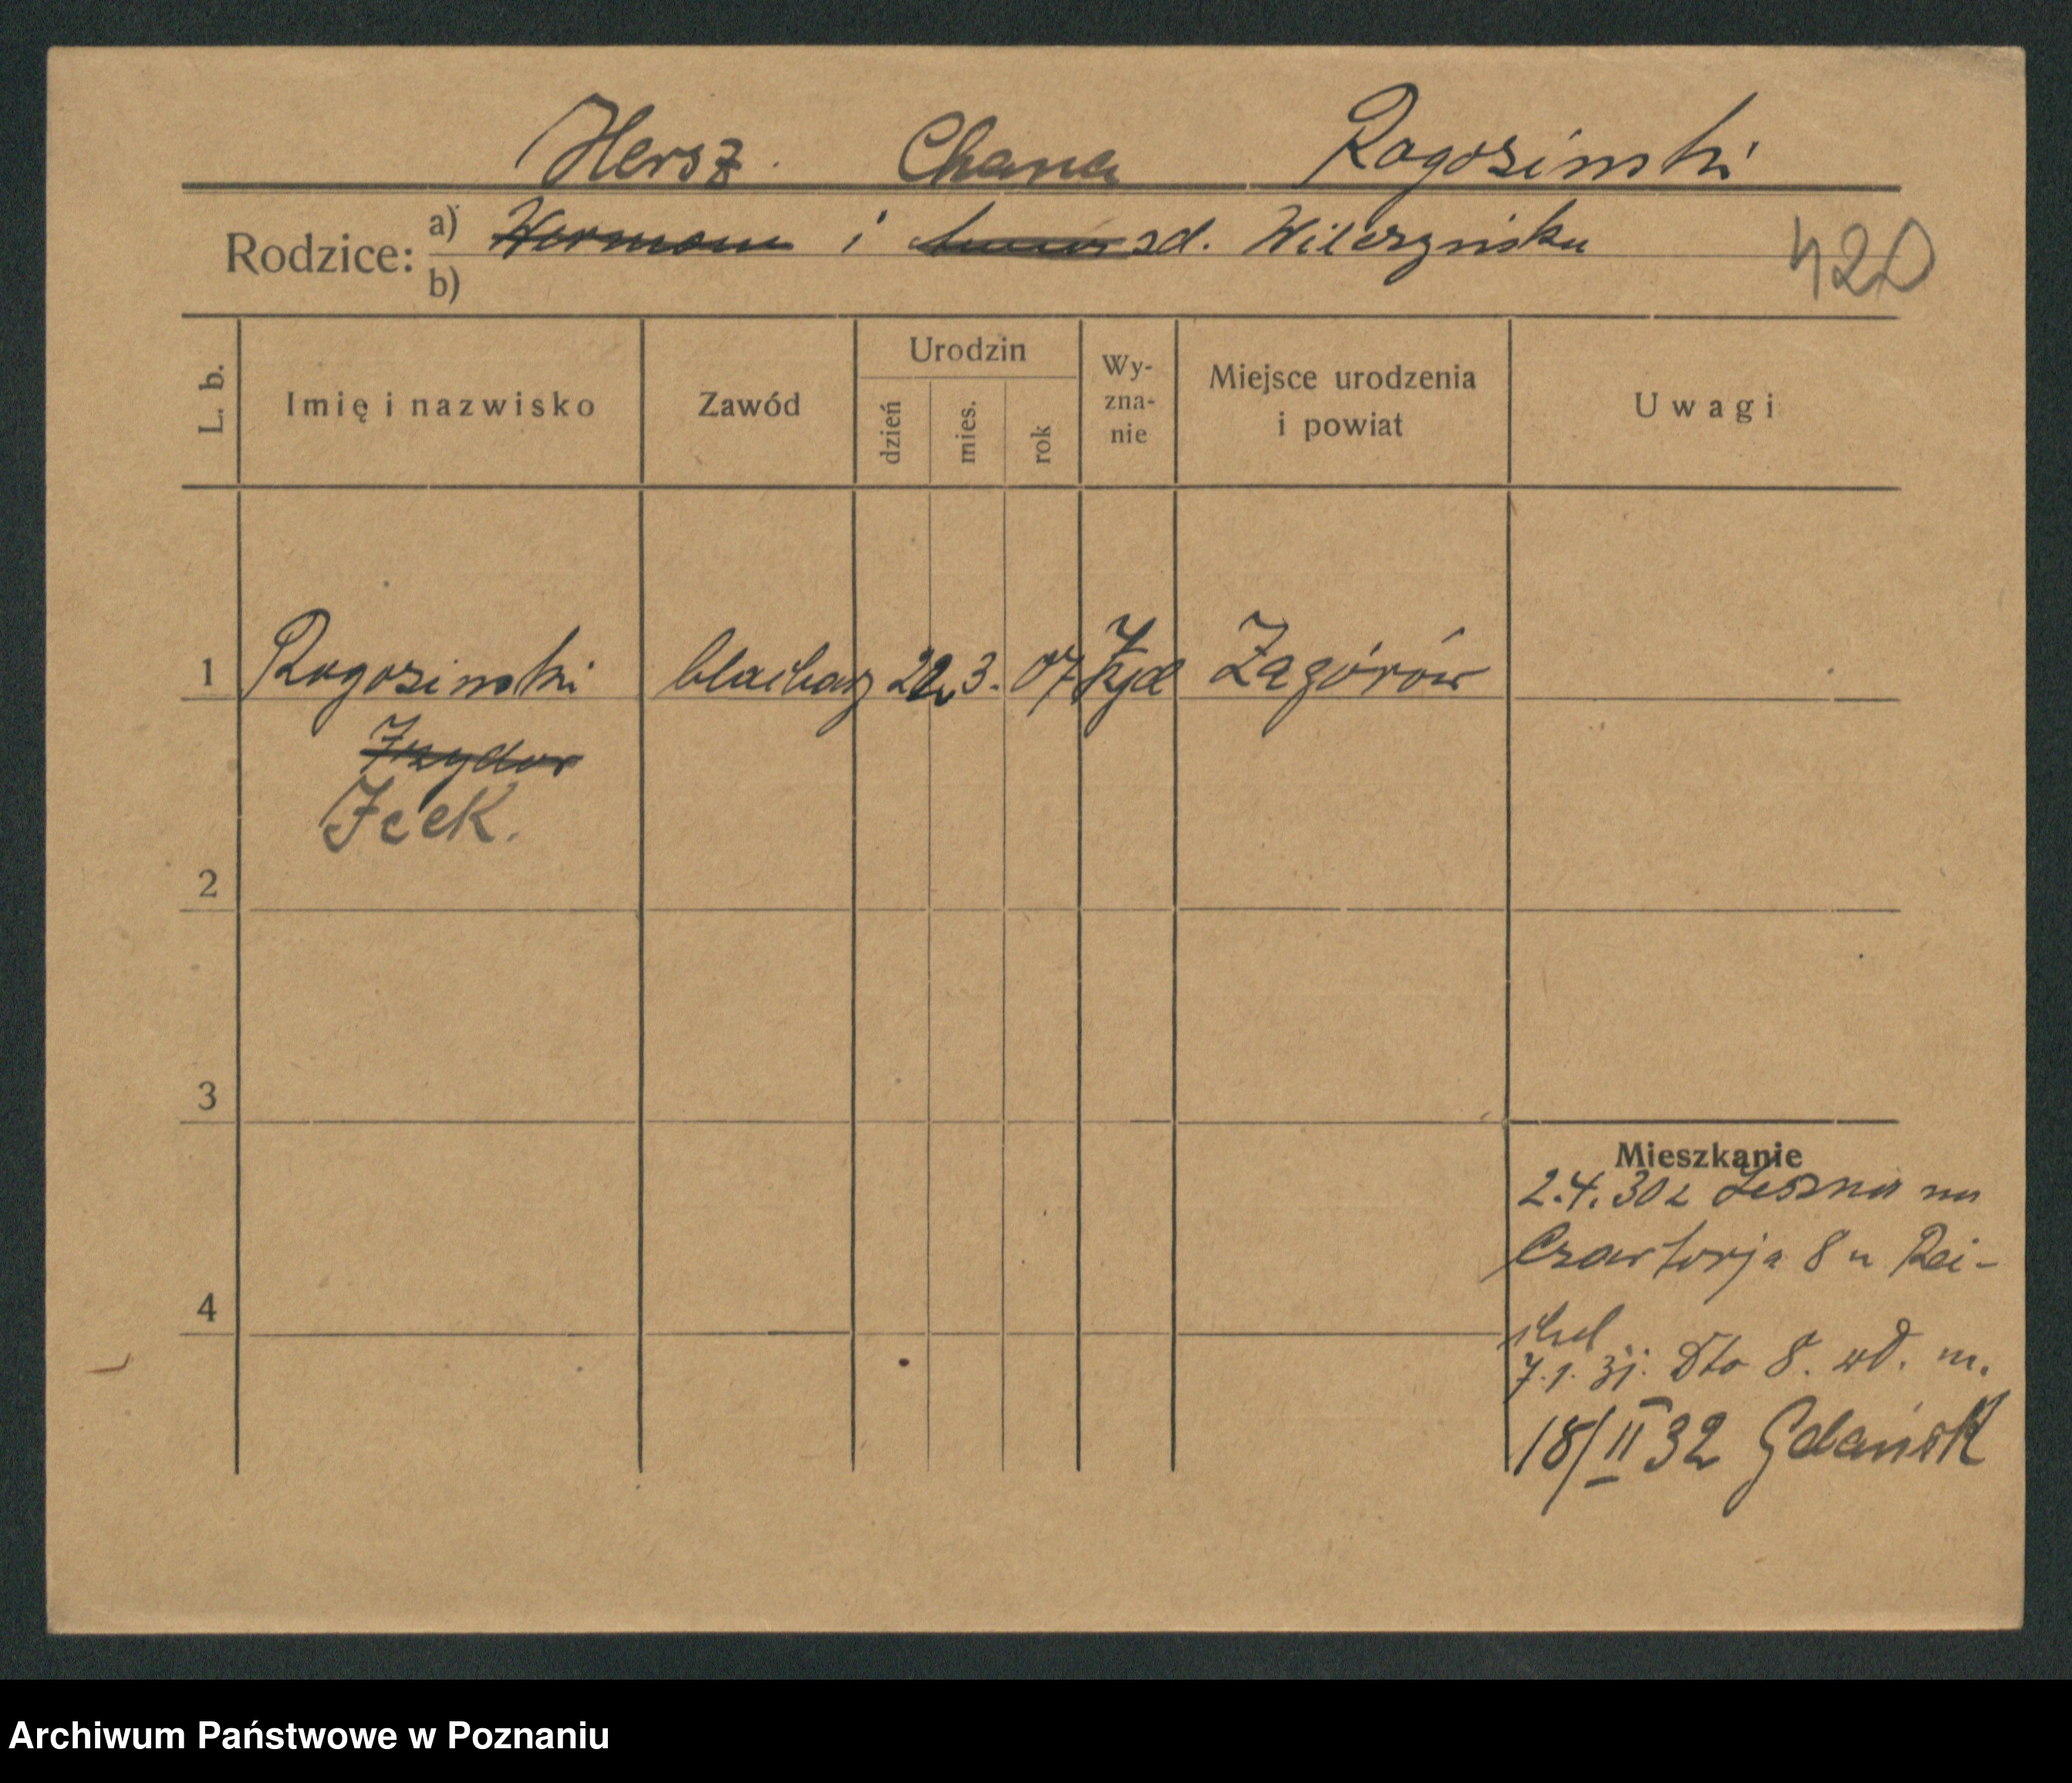 Hersz Chana Rogosinski
Rodzice: a) Herman i Anna zd. Wilczyńska
b)
420
L. b. Imię i nazwisko Zawód Urodzin dzień mies. rok Wy-zna-nie Miejsce urodzenia i powiat Uwagi
1 Rogosinski blacharz 22. 3. 07 żyd Zagórów
Izydor
Icek.
2
3
4
Mieszkanie
2.4.30 z Leszna na
Czartorja 8 u Rei-
chel
7.1.31. Dto 8. wd. m.
18/II 32 Gdańsk
Archiwum Państwowe w Poznaniu